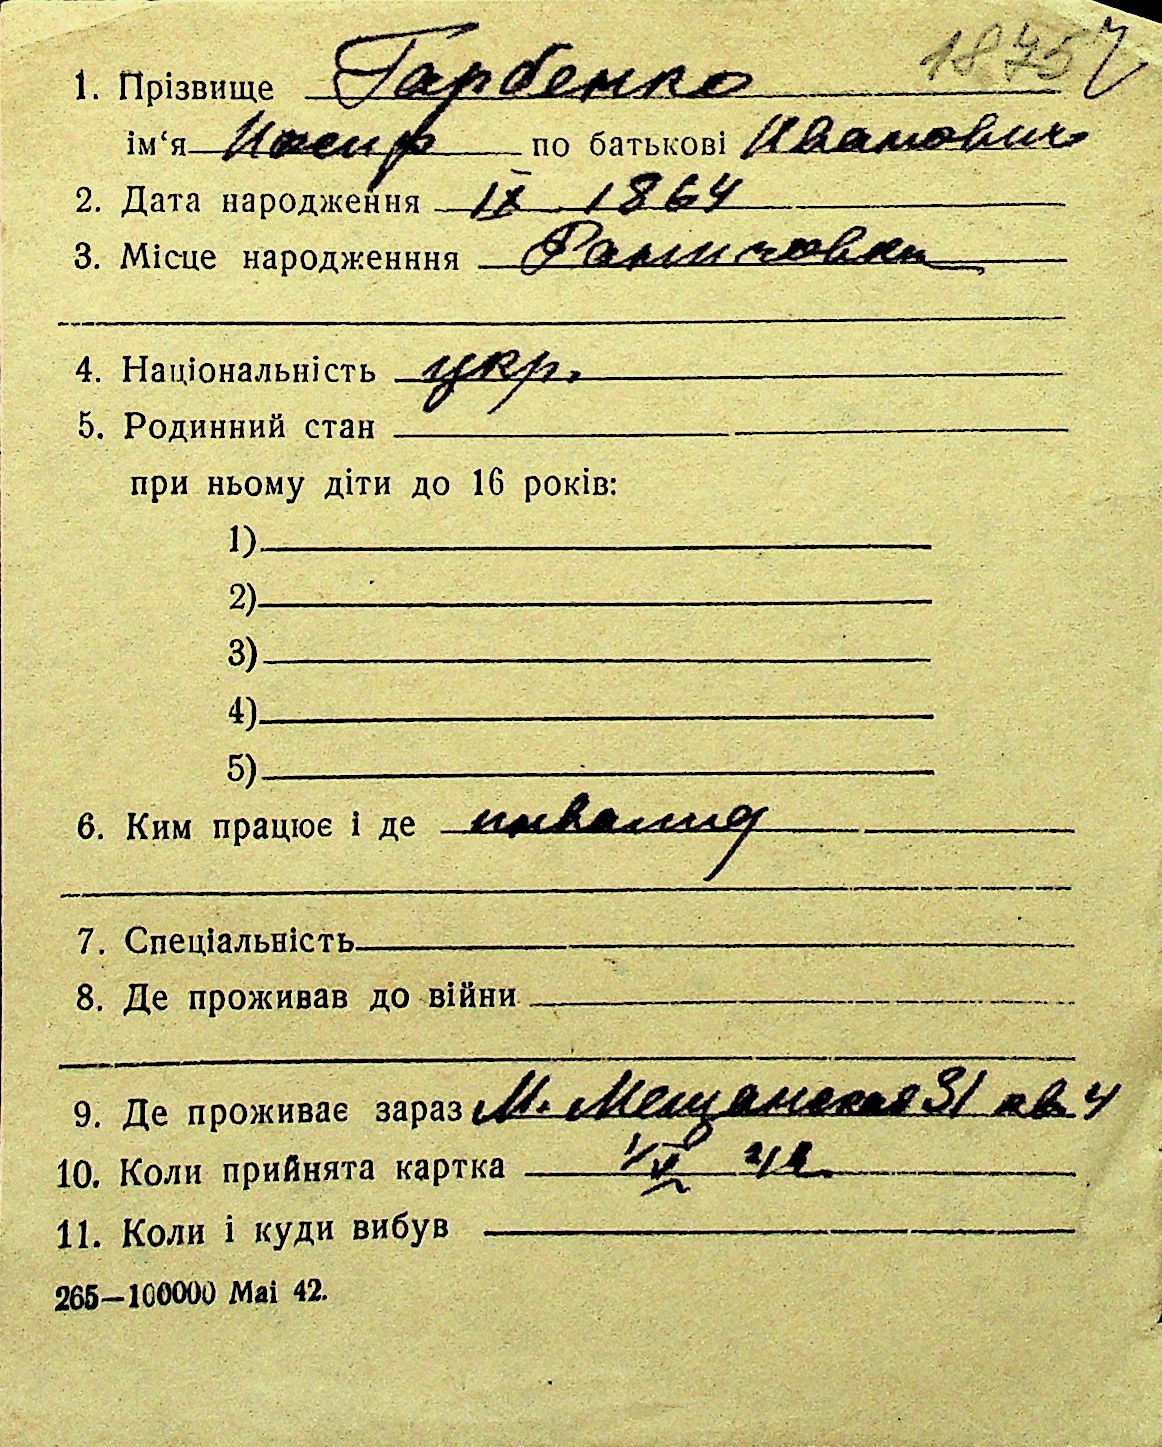 18757
1. Прізвище Гарбенко
ім‘я Иосиф по батькові Иванович
2. Дата народження IX 1864
3. Місце народженння
4. Національність укр.
5. Родинний стан
при ньому діти до 16 років:
1)
2)
3)
4)
5)
6. Ким працює і де инвалид
7. Спеціальність
8. Де проживав до війни
9. Де проживає зараз М. Мещанская 31 кв. 4
10. Коли прийнята картка 42
11. Коли і куди вибув
265—100000 Mai 42.